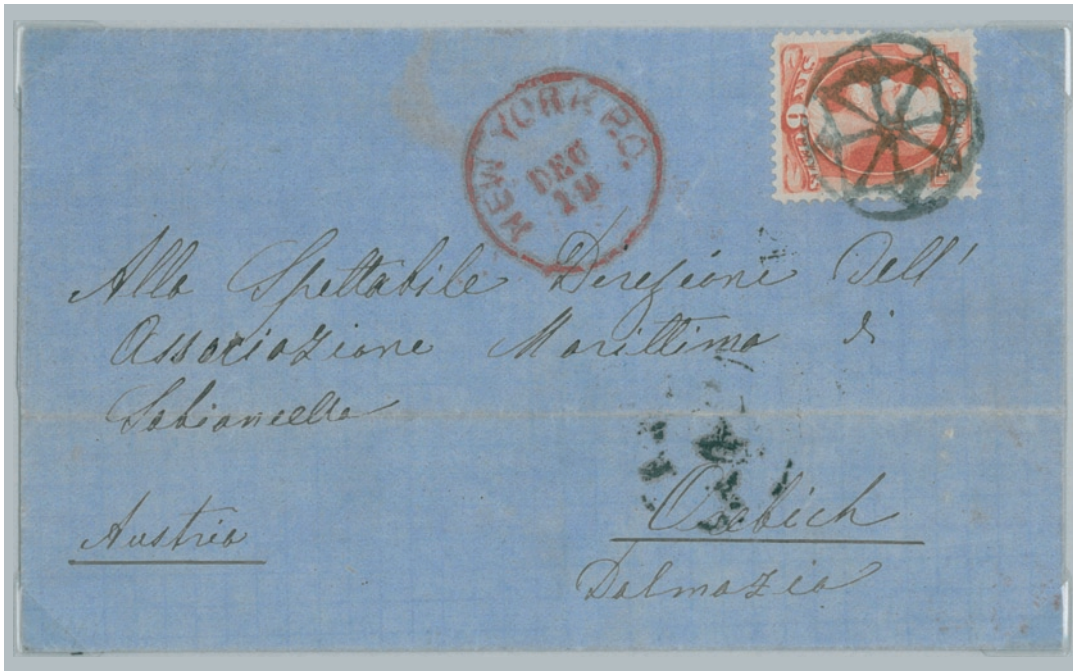 NEW YORK P.O.
DEC
10
6 CENTS
Alla Spettabile Direzione Dell'
Associazione Marittima di
Sabioncello
Austria
Orebich
Dalmazia